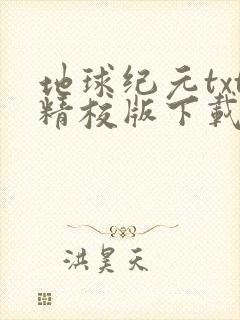 地球纪元txt
精校版下载
洪昊天